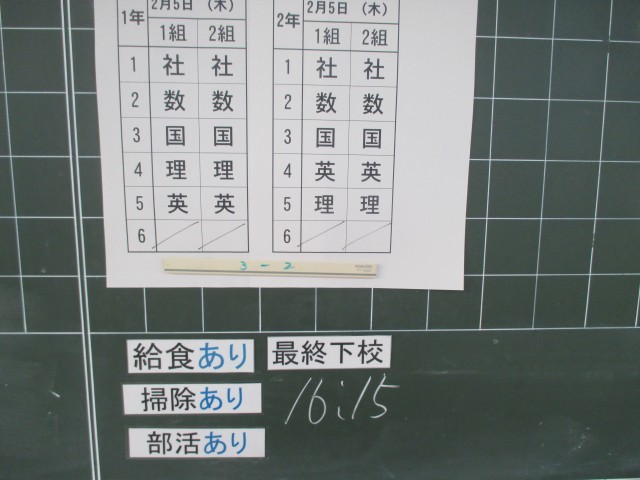 1年 2月5日 (木)
1組 2組
1 社 社
2 数 数
3 国 国
4 理 理
5 英 英
6
2年 2月5日 (木)
1組 2組
1 社 社
2 数 数
3 国 国
4 英 英
5 理 理
6
3-2
給食あり
最終下校
掃除あり
16:15
部活あり